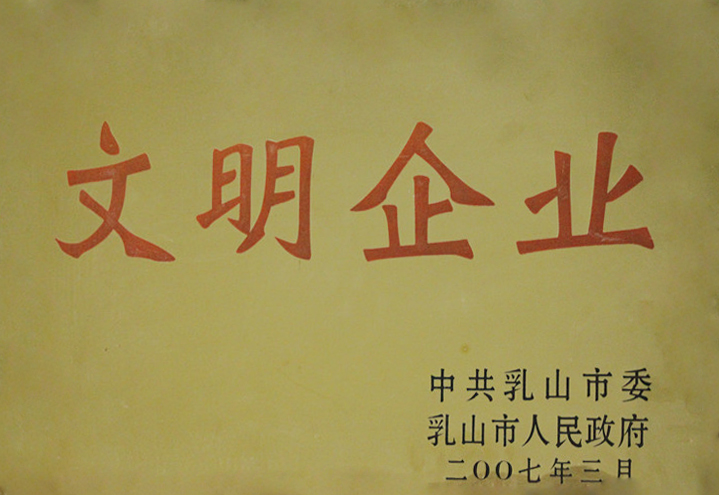 文明企业
中共乳山市委
乳山市人民政府
二〇〇七年三月